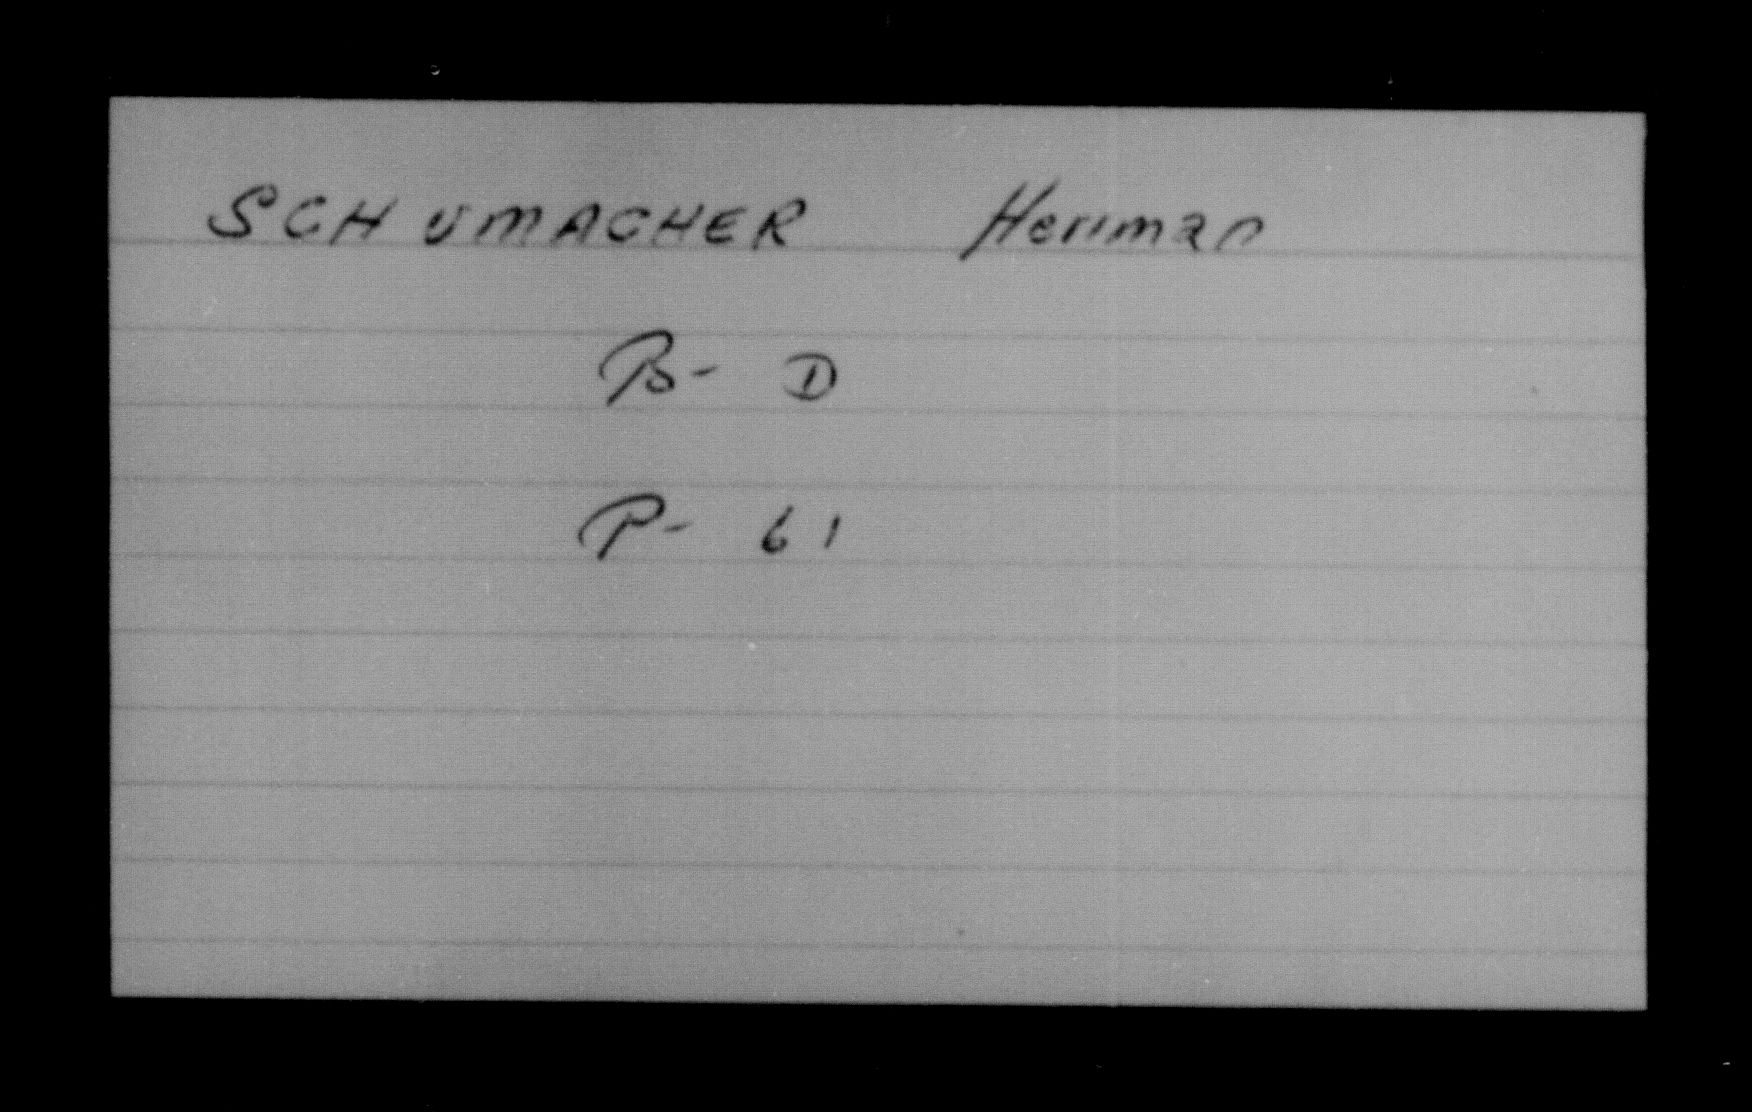 SCHUMACHER Herman
B- D
P- 61